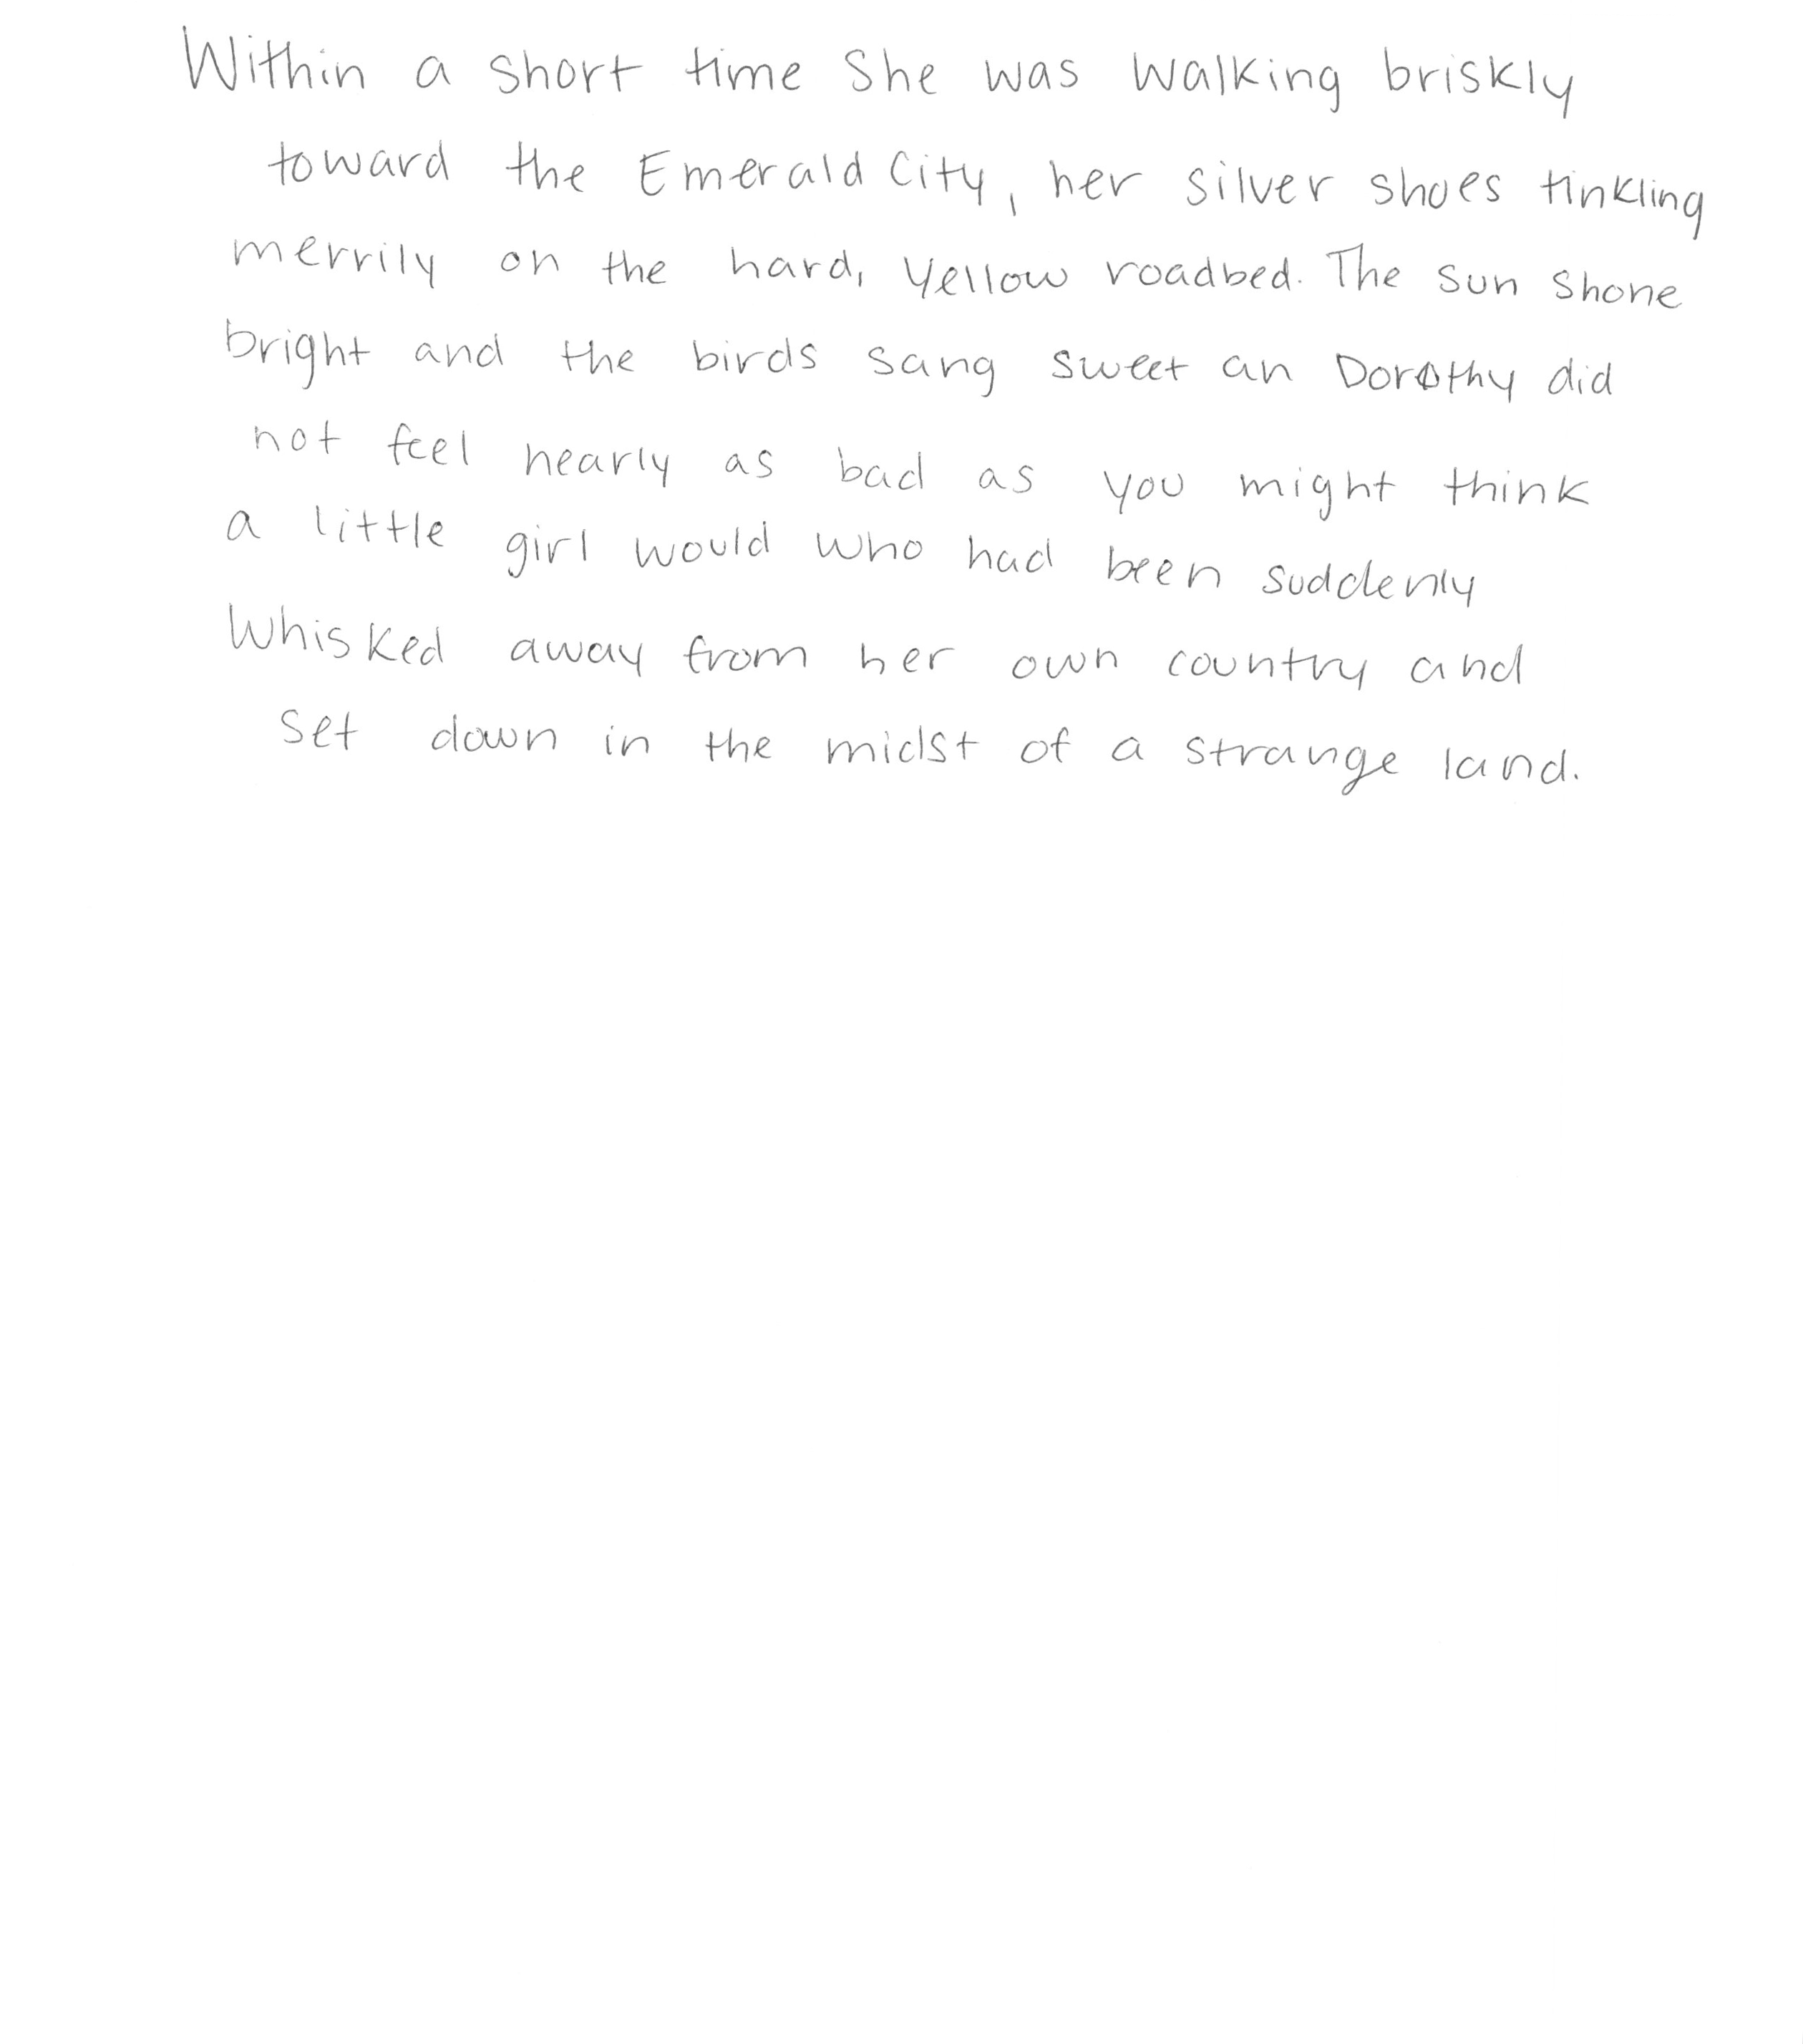 Within a short time she was walking briskly
toward the Emerald City, her silver shoes tinkling
merrily on the hard, yellow roadbed. The sun shone
bright and the birds sang sweet an Dorothy did
not feel nearly as bad as you might think
a little girl would who had been suddenly
whisked away from her own country and
set down in the midst of a strange land.